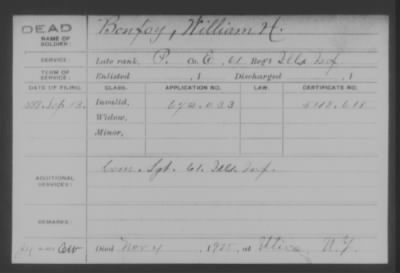 DEAD
NAME OF SOLDIER:
Bonfay, William H.
SERVICE:
Late rank, P. Co. E, 61 Reg't Ills Inf.
TERM OF SERVICE:
Enlisted , 1 Discharged , 1
DATE OF FILING. CLASS. APPLICATION NO. LAW. CERTIFICATE NO.
Invalid,
Widow,
Minor,
ADDITIONAL SERVICES:
Com. Sgt. 61. Ills. Inf.
REMARKS:
Died Nov 4, 190 at Utica N.Y.